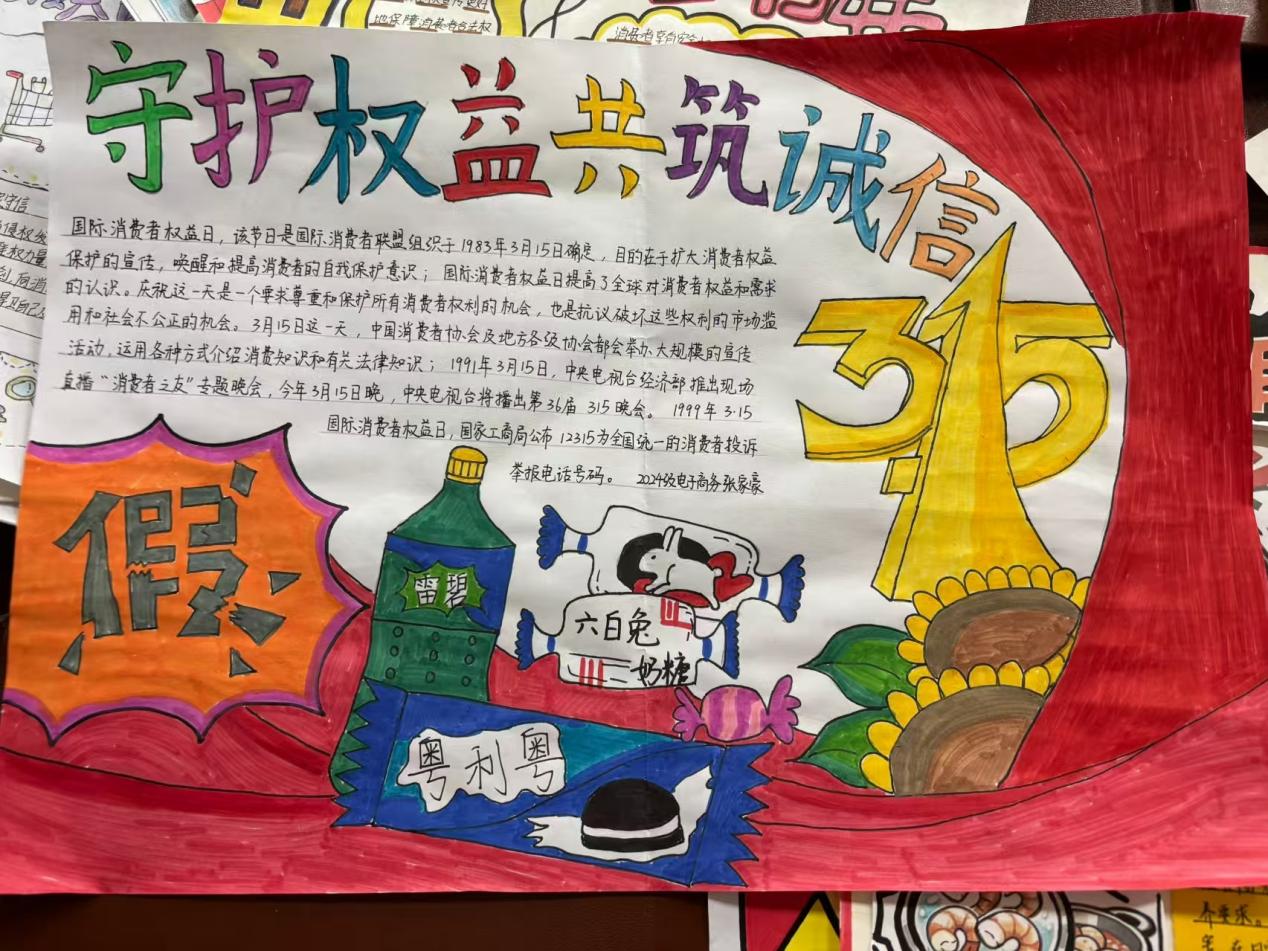 守护权益共筑诚信
国际消费者权益日，该节日是国际消费者联盟组织于1983年3月15日确定，目的在于扩大消费者权益
保护的宣传，唤醒和提高消费者的自我保护意识；国际消费者权益日提高了全球对消费者权益和需求
的认识。庆祝这一天是一个要求尊重和保护所有消费者权利的机会，也是抗议破坏这些权利的市场滥
用和社会不公正的机会。3月15日这一天，中国消费者协会及地方各级协会都会举办大规模的宣传
活动，运用各种方式介绍消费知识和有关法律知识；1991年3月15日，中央电视台经济部推出现场
直播“消费者之友”专题晚会，今年3月15日晚，中央电视台将播出第36届 315晚会。 1999年3·15
国际消费者权益日，国家工商局公布12315为全国统一的消费者投诉
举报电话号码。 2024级电子商务张家豪
3.15
假
雷碧
六白兔
奶糖
粤利粤
养要求。